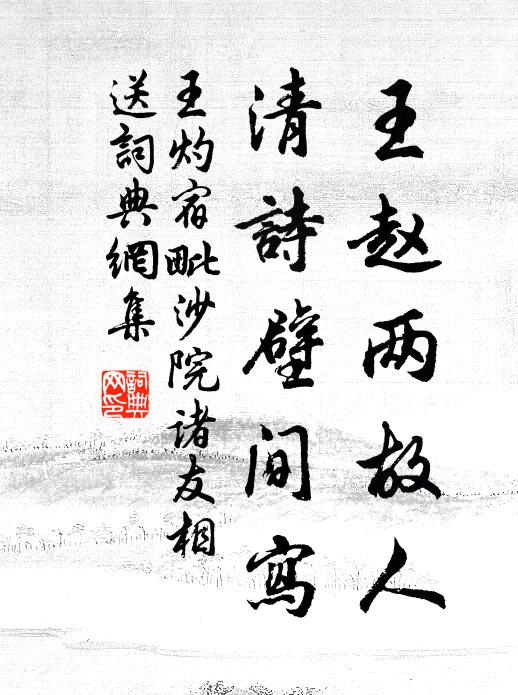 王赵两故人
清詩壁間寫
王灼宿毗沙院诸友相
送詞典網集
詞典
网印